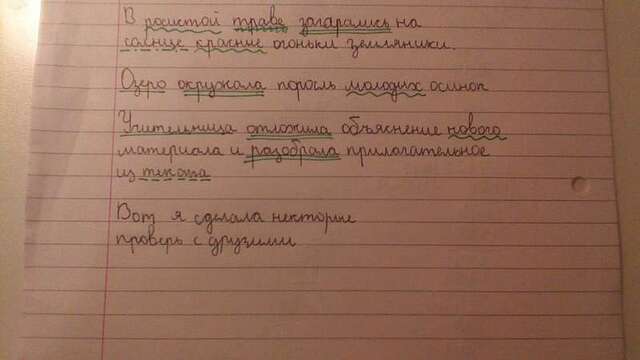 В росистой траве загарались на
солнце красние огоньки земляники.
Озеро окружала поросль молодых осинок
Учительница отложила объяснение нового
материала и разобрала прилагательное
из текста
Вот я сделала некторие
проверь с друзими